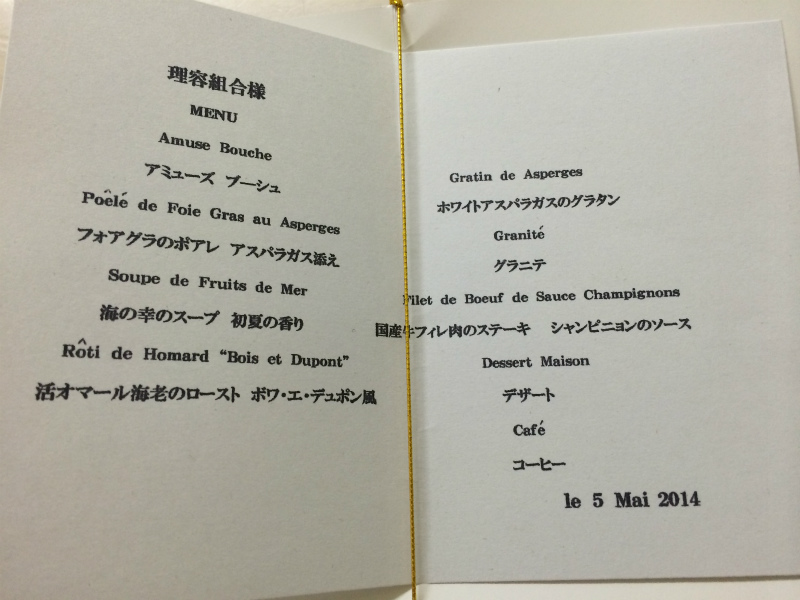 理容組合様
MENU
Amuse Bouche
アミューズ ブーシュ
Poêlé de Foie Gras au Asperges
フォアグラのポアレ アスパラガス添え
Soupe de Fruits de Mer
海の幸のスープ 初夏の香り
Rôti de Homard “Bois et Dupont”
活オマール海老のロースト ボワ・エ・デュポン風
Gratin de Asperges
ホワイトアスパラガスのグラタン
Granité
グラニテ
Filet de Boeuf de Sauce Champignons
国産牛フィレ肉のステーキ シャンピニョンのソース
Dessert Maison
デザート
Café
コーヒー
le 5 Mai 2014